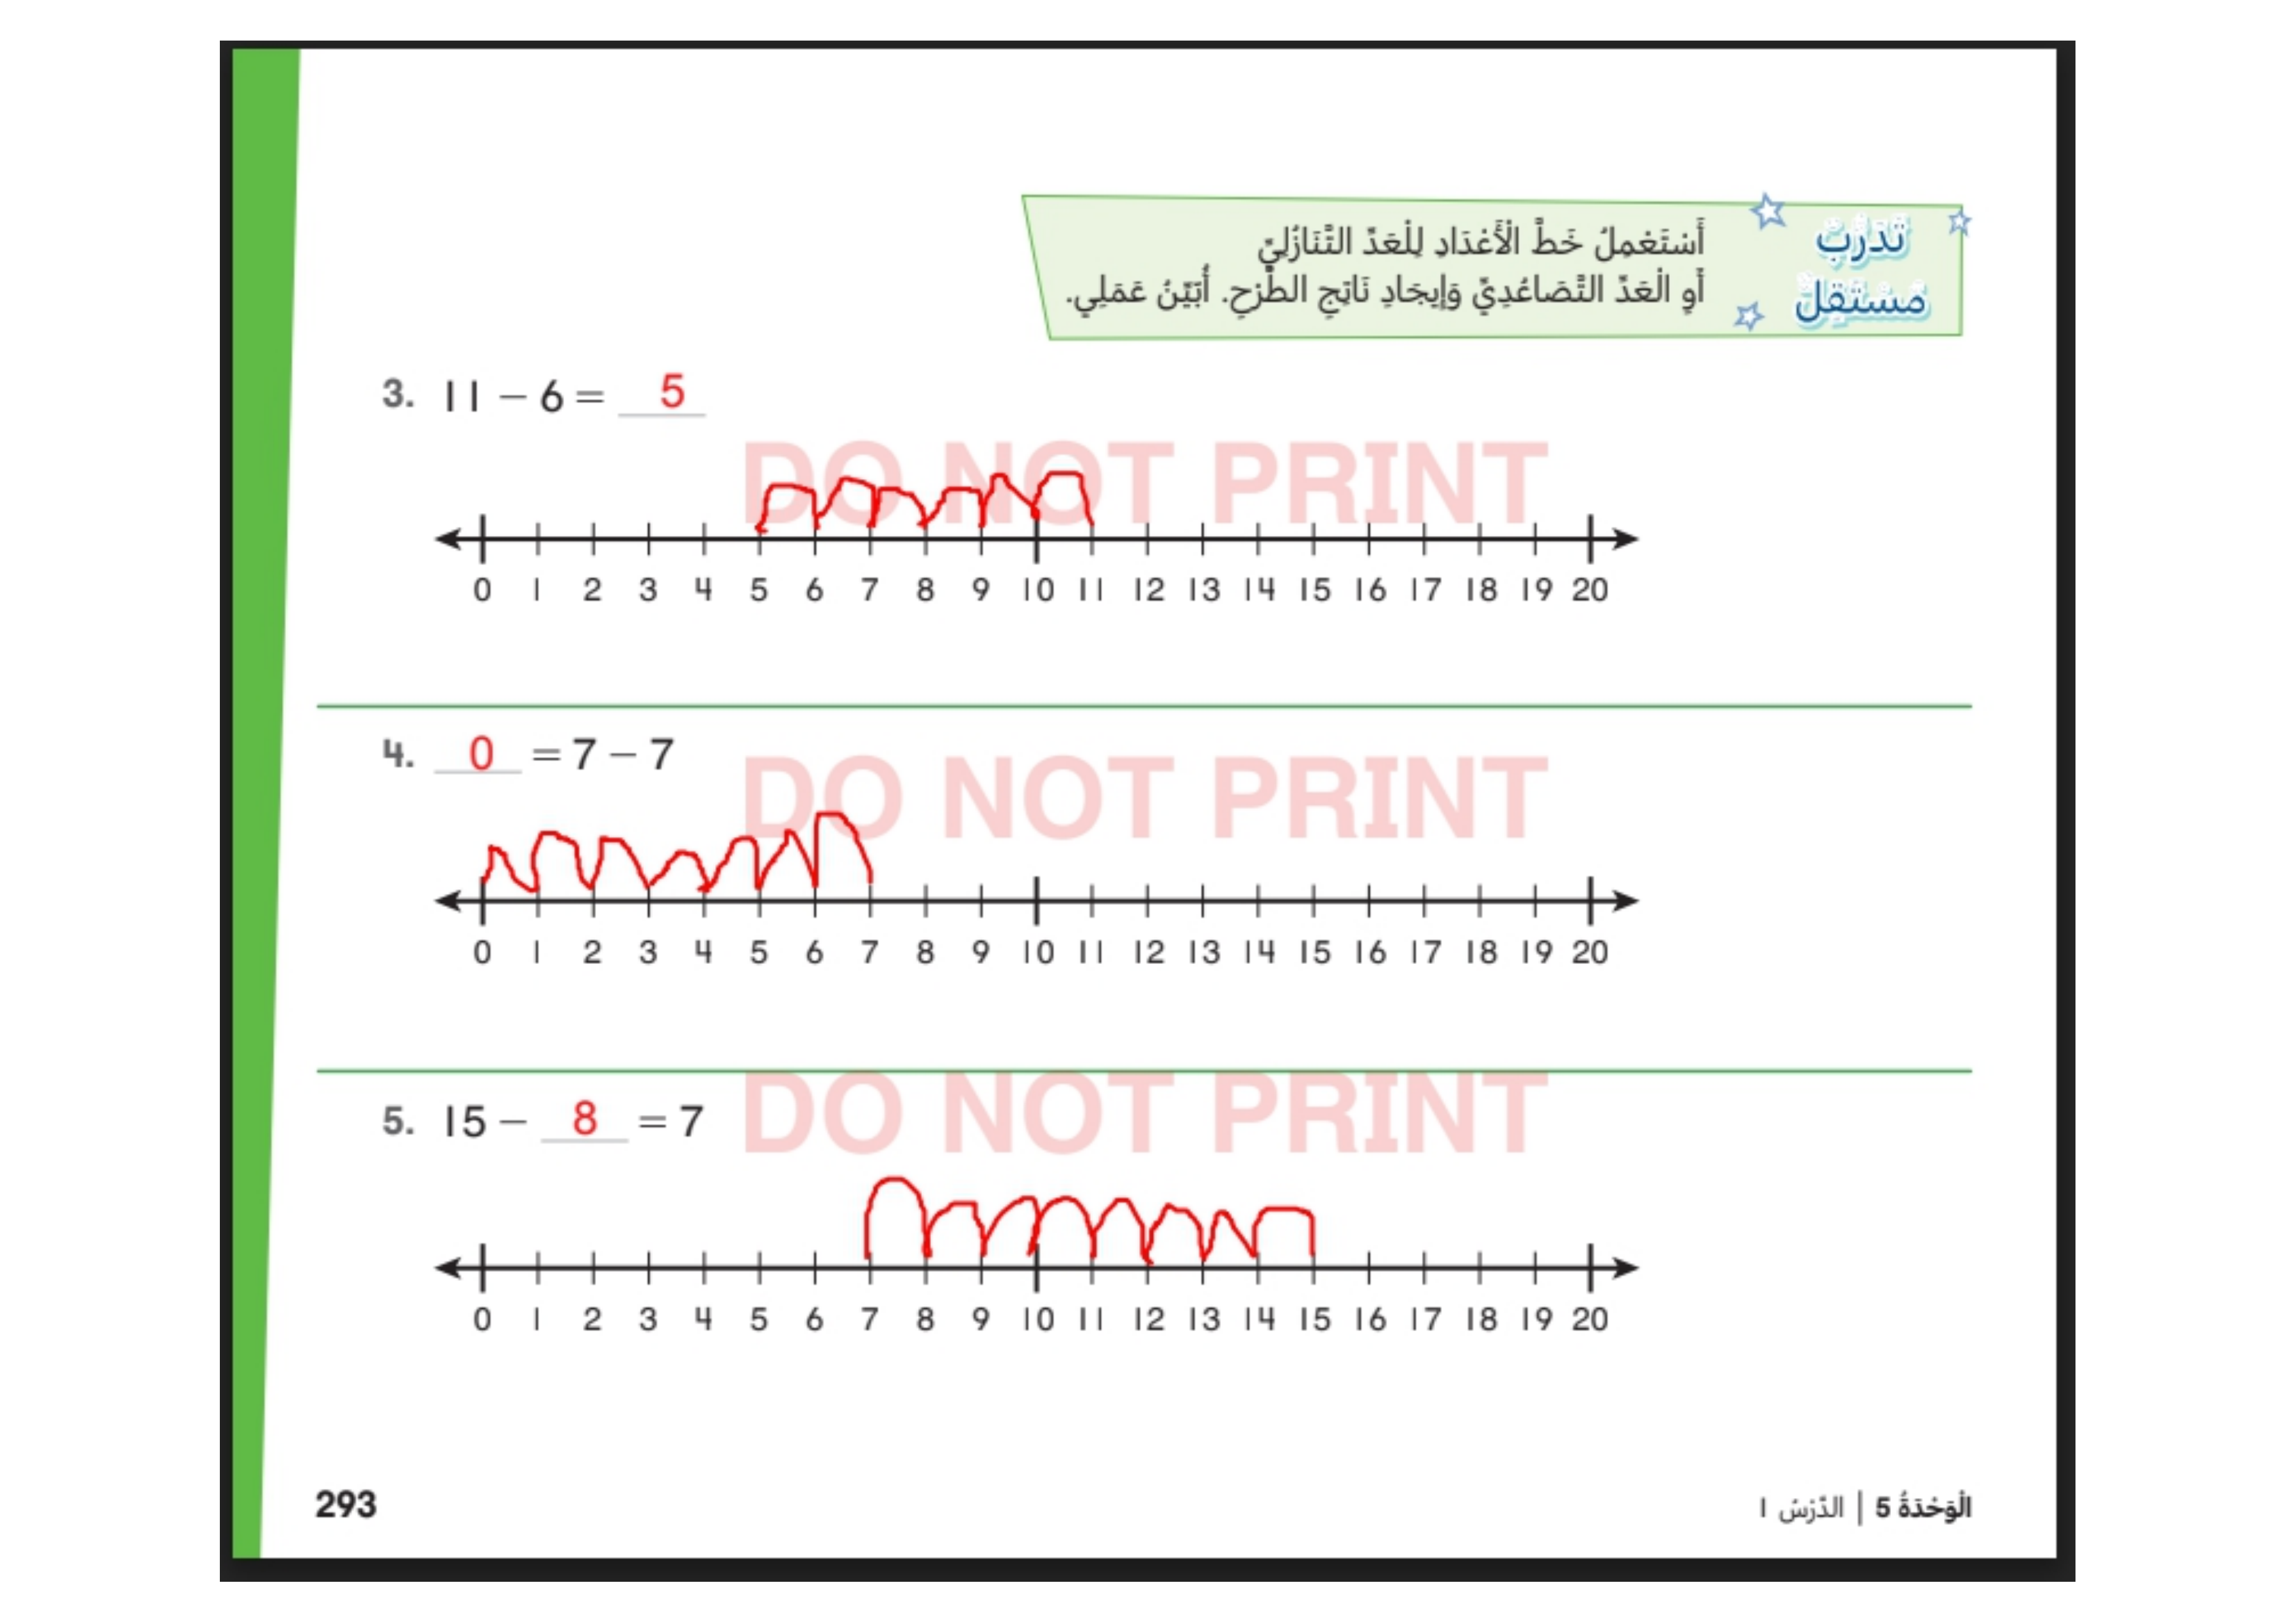 تَدَرُّبٌ
مُسْتَقِلٌّ
أَسْتَعْمِلُ خَطَّ الْأَعْدَادِ لِلْعَدِّ التَّنَازُلِيِّ
أَوِ الْعَدِّ التَّصَاعُدِيِّ وَإِيجَادِ نَاتِجِ الطَّرْحِ. أُبَيِّنُ عَمَلِي.
3. 11 – 6 = 5
DO NOT PRINT
0 1 2 3 4 5 6 7 8 9 10 11 12 13 14 15 16 17 18 19 20
4. 0 = 7 – 7
DO NOT PRINT
0 1 2 3 4 5 6 7 8 9 10 11 12 13 14 15 16 17 18 19 20
5. 15 – 8 = 7
DO NOT PRINT
0 1 2 3 4 5 6 7 8 9 10 11 12 13 14 15 16 17 18 19 20
الْوَحْدَةُ 5 | الدَّرْسُ 1
293